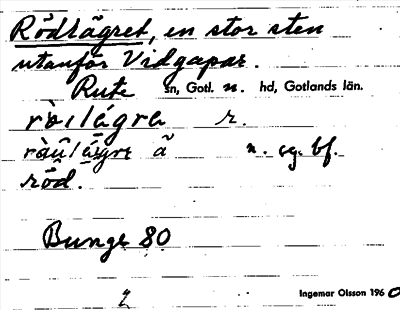 Rödlägret, en stor sten
utanför Vidgapar.
Rute sn, Gotl. n. hd, Gotlands län.
n. sg. bf.
röd.
Bunge 80
Ingemar Olsson 1960